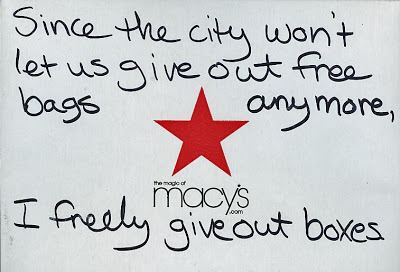 Since the city won't
let us give out free
bags anymore,
the magic of
macy's
.com
I freely give out boxes.